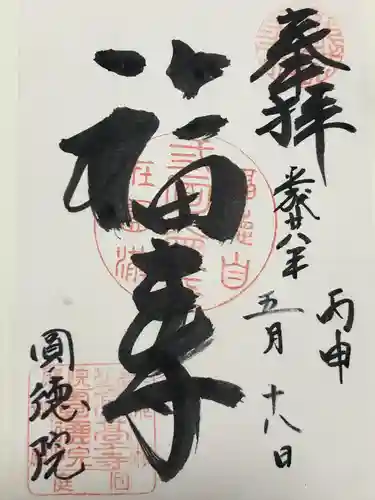 奉拝
平成廿八年
丙申
五月十八日
福寿
圓徳院